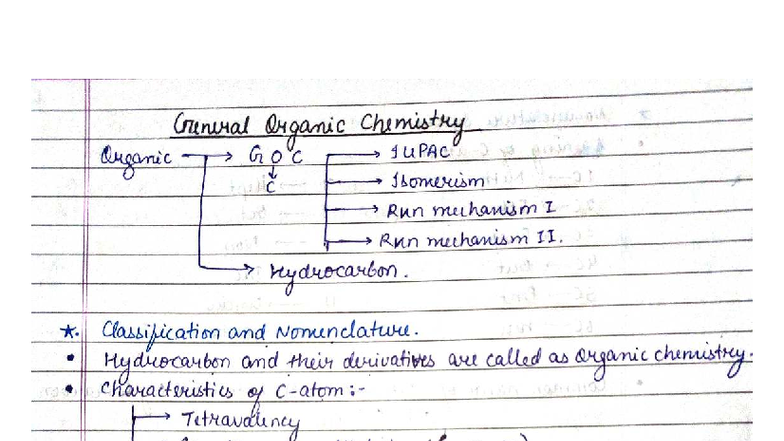 General Organic Chemistry
Organic → G O C → IUPAC
C → Isomerism
→ Rxn mechanism I
→ Rxn mechanism II.
→ Hydrocarbon.
*. Classification and Nomenclature.
• Hydrocarbon and their derivatives are called as Organic chemistry.
• Characteristics of C-atom :-
→ Tetravalency